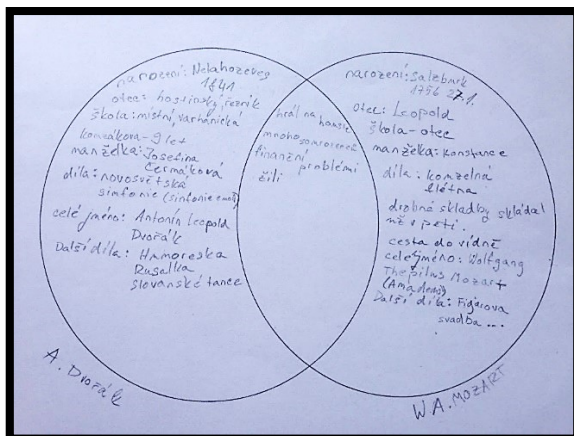 narození: Nelahozeves
1841
otec: hostinský, řezník
škola: místní, varhanická
manželka: Josefina
Čermáková
díla: novosvětská
simfonie
celé jméno: Antonín Leopold
Dvořák
Další díla: Humoreska
Rusalka
slovanské tance
hrál na
housle
mnoho sourozenců
finanční
problémi
žili
narození: Salzburk
1756 27.1.
otec: Leopold
škola - otec
manželka: Konstance
díla: kouzelná
flétna
drobné skladby skládal
už v pěti.
cesta do vídně
celé jméno: Wolfgang
Mozart
(Amadeus)
Další díla: Figarova
svadba ...
A. Dvořák
W.A. MOZART